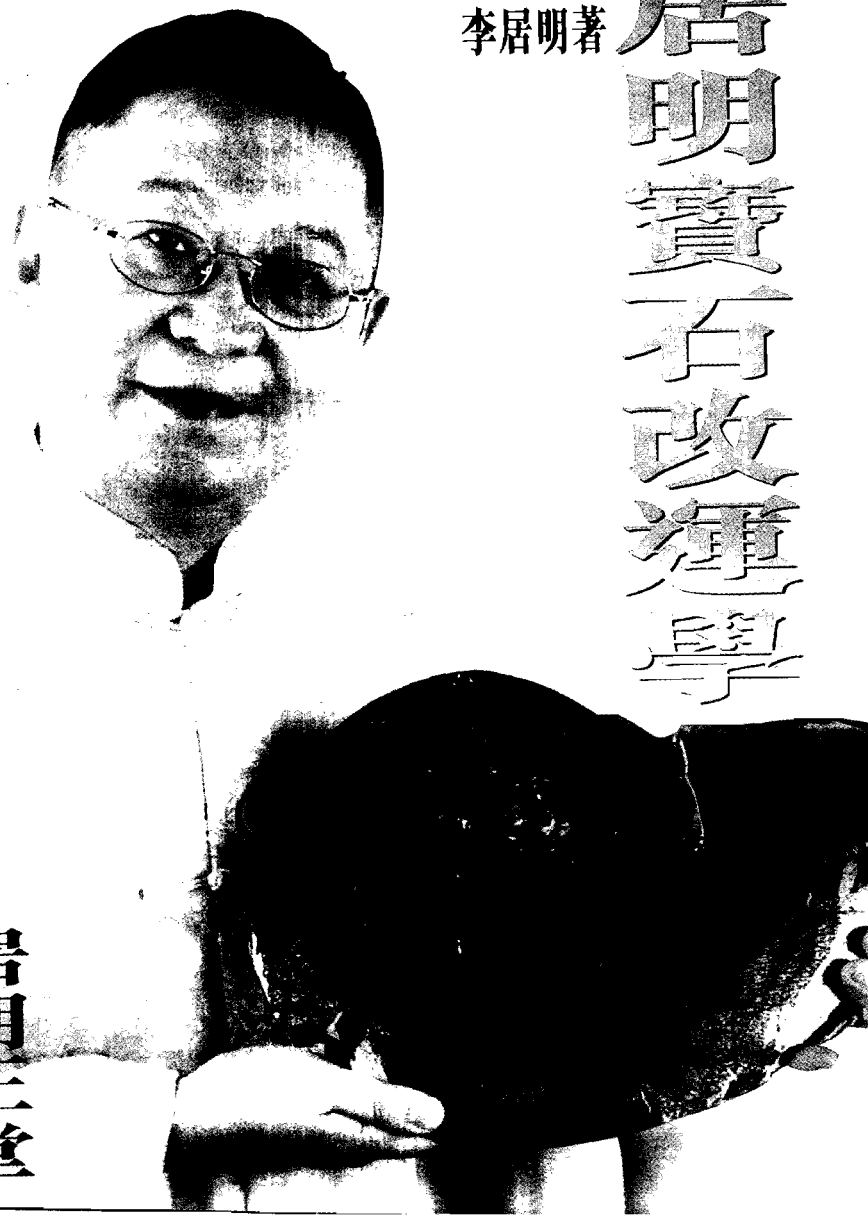 李居明著
居明寶石改運學